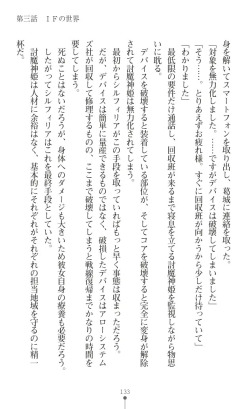 第三話　ＩＦの世界
身を解いてスマートフォンを取り出し、葛城に連絡を取る。
「対象を無力化しました……ですがデバイスは破壊してしまいました」
「そう……、とりあえずお疲れ様、すぐに回収班が向かうから少しだけ待っていて」
「わかりました」
最低限の要件だけ通話し、回収班が来るまで寝息を立てる討魔神姫を監視しながら物思
いに耽る。
デバイスを破壊すると装着している部位が、そしてコアを破壊すると完全に変身が解除
されて討魔神姫は無力化されてしまう。
最初からシルフィリアがこの手段を取っていればもっと早く事態は収まっただろう。
だが、デバイスは簡単に量産できるものではなく、破損したデバイスはアローシステム
ズ社が回収して修理するものの、ここまで破壊してしまうと戦線復帰までかなりの時間を
要してしまう。
死ぬことはないだろうが、身体へのダメージも大きいため彼女自身の療養も必要だろう。
したがってシルフィリアはこれを最終手段としていた。
討魔神姫は人材に余裕はなく、基本的にそれぞれがそれぞれの担当地域を守るのに精一
杯だ。
133